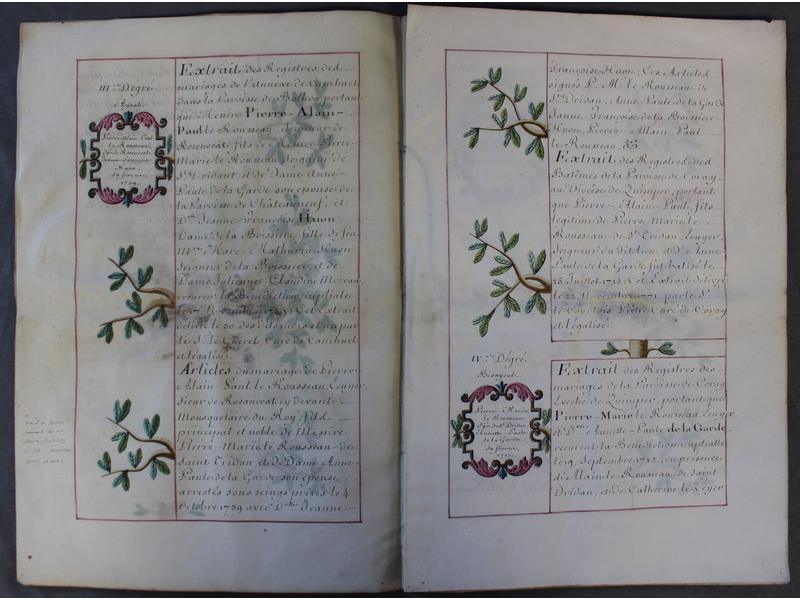 III.e Dégré.
Ayeul.
Pierre-Alain Paul
le Rousseau
Sgr de Rosencoat
Jeanne-Françoise
Huon
Sa femme.
1739.
Extrait des Registres des
mariages de l'Annéxe de Canihuel
dans la Paroisse de Bothoa portant
que Messire Pierre-Alain-
Paul le Rousseau, Seigneur de
Rosencoat, fils de Messire Pierre
Marie le Rousseau Seigneur de
St Dridant, et de Dame Anne-
Paule de la Garde son epouse de
la Paroisse de Châteauneuf, et
Dlle Jeanne Françoise Huon
Dame de la Boissiere, fille de feu
Mre Marc-Mathurin Huon
Seigneur de la Boissiere, et de
Dame Julienne Claudine Moreau
recurent la Bénédiction nuptiale
le 17 Novembre 1739: Cet Extrait
délivré le 20 des dits mois et an par
le S. le Guevel, Curé de Canihuel
et légalisé.
Articles du mariage de Pierre-
Alain-Paul le Rousseau, Ecuyer,
Sieur de Rosancoat, cy devant
Mousquetaire du Roy, fils
principal et noble de Messire
Pierre-Marie le Rousseau-de
Saint Tridan et de Dame Anne-
Paule de la Garde son epouse,
arrestés sous seings privés le 4
Octobre 1739 avec Dlle Jeanne
Françoise Huon; Ces Articles
signés P. M. le Rousseau de
St Dridan, Anne-Paule de la Garde
Janne-Françoise de la Boissiere
Huon, Pierre-Alain-Paul
le Rousseau, &c.
Extrait des Registres des
Batêmes de la Paroisse de Coray
au Diocèse de Quimper, portant
que Pierre-Alain-Paul, fils
legitime de Pierre Marie le
Rousseau-de St Tridan, Ecuyer,
Seigneur du dit lieu, et de Anne
Paule de la Garde, fut batisé le
25 Juillet 1715: Cet Extrait délivré
le 22 Novembre 1771. par le Sr
le Coustois Prêtre Curé de Coray
et légalisé.
IV.e Dégré.
Bisayeul.
Pierre-Marie
le Rousseau
Sgr de St Dridan
Annette-Paule
de la Garde
Sa femme.
1712.
Extrait des Registres des
mariages de la Paroisse de Coray
Evêché de Quimper, portant que
Pierre-Marie le Rousseau, Ecuyer
et Dlle Annette-Paule de la Garde,
recurent la Bénédiction nuptialle
le 19. Septembre 1712. en presence
d'Alain le Rousseau, de Saint
Dridan, et de Catherine le Veyer